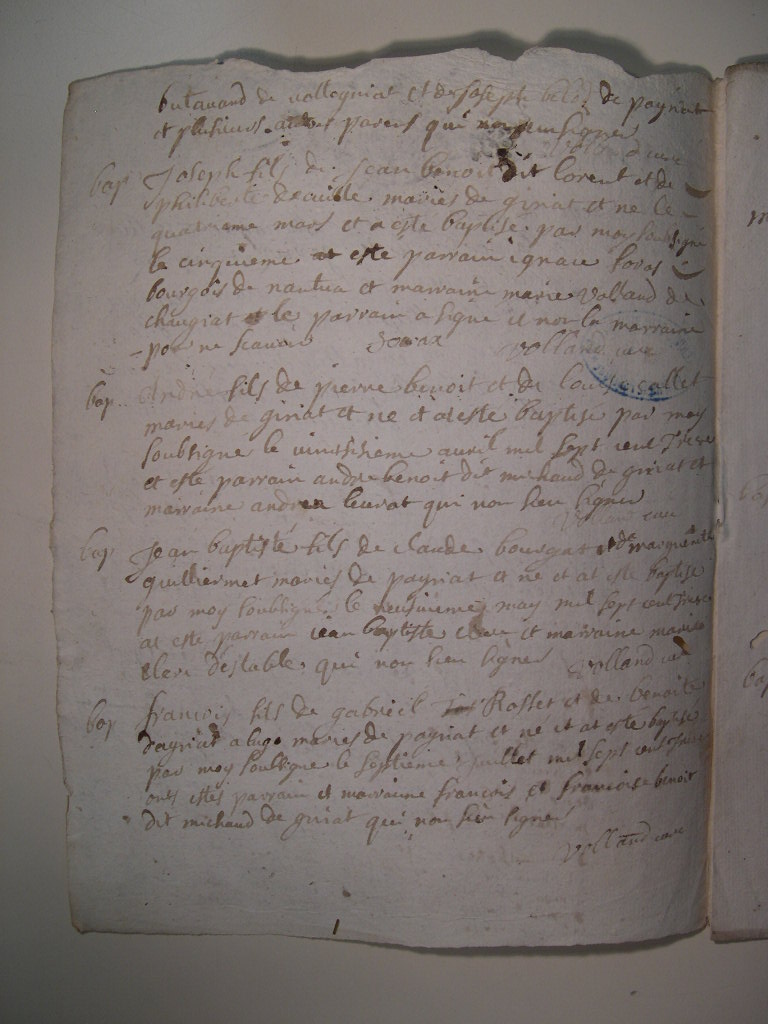 de vallegriat et de Joseph de payriat
et plusieurs autres parens qui
Volland curé
bap
Joseph fils de Jean benoit dit lorent et de
philiberte mariés de giriat et ne le
quatrieme mars et a este baptise par moy soubsigne
le cinquieme at este parrain ignace
bourgois de nantua et marraine marie Volland de
chaugriat et le parrain a signe et non la marraine
pour ne scavoir Volland curé
bap
André fils de pierre benoit et de callet
maries de giriat et ne et at este baptise par moy
soubsigne le avril mil sept cent Treze
et este parrain andre benoit dit michaud de giriat et
marraine leurat qui non sceu signer
Volland curé
bap
Jean baptiste fils de claude bourgat et de marguerite
guilliermet maries de payriat et ne et at este baptise
par moy soubsigne le may mil sept cent Treze
at este parrain iean baptiste et marraine
destable qui non sceu signer Volland curé
bap
francois fils de gabriel Rosset et de benoite
maries de payriat et né et at este baptise
par moy soubsigne le septieme juillet mil sept cent
onts estes parrain et marrainne francois et francoise benoit
dit michaud de giriat qui non sceu signer
Volland curé